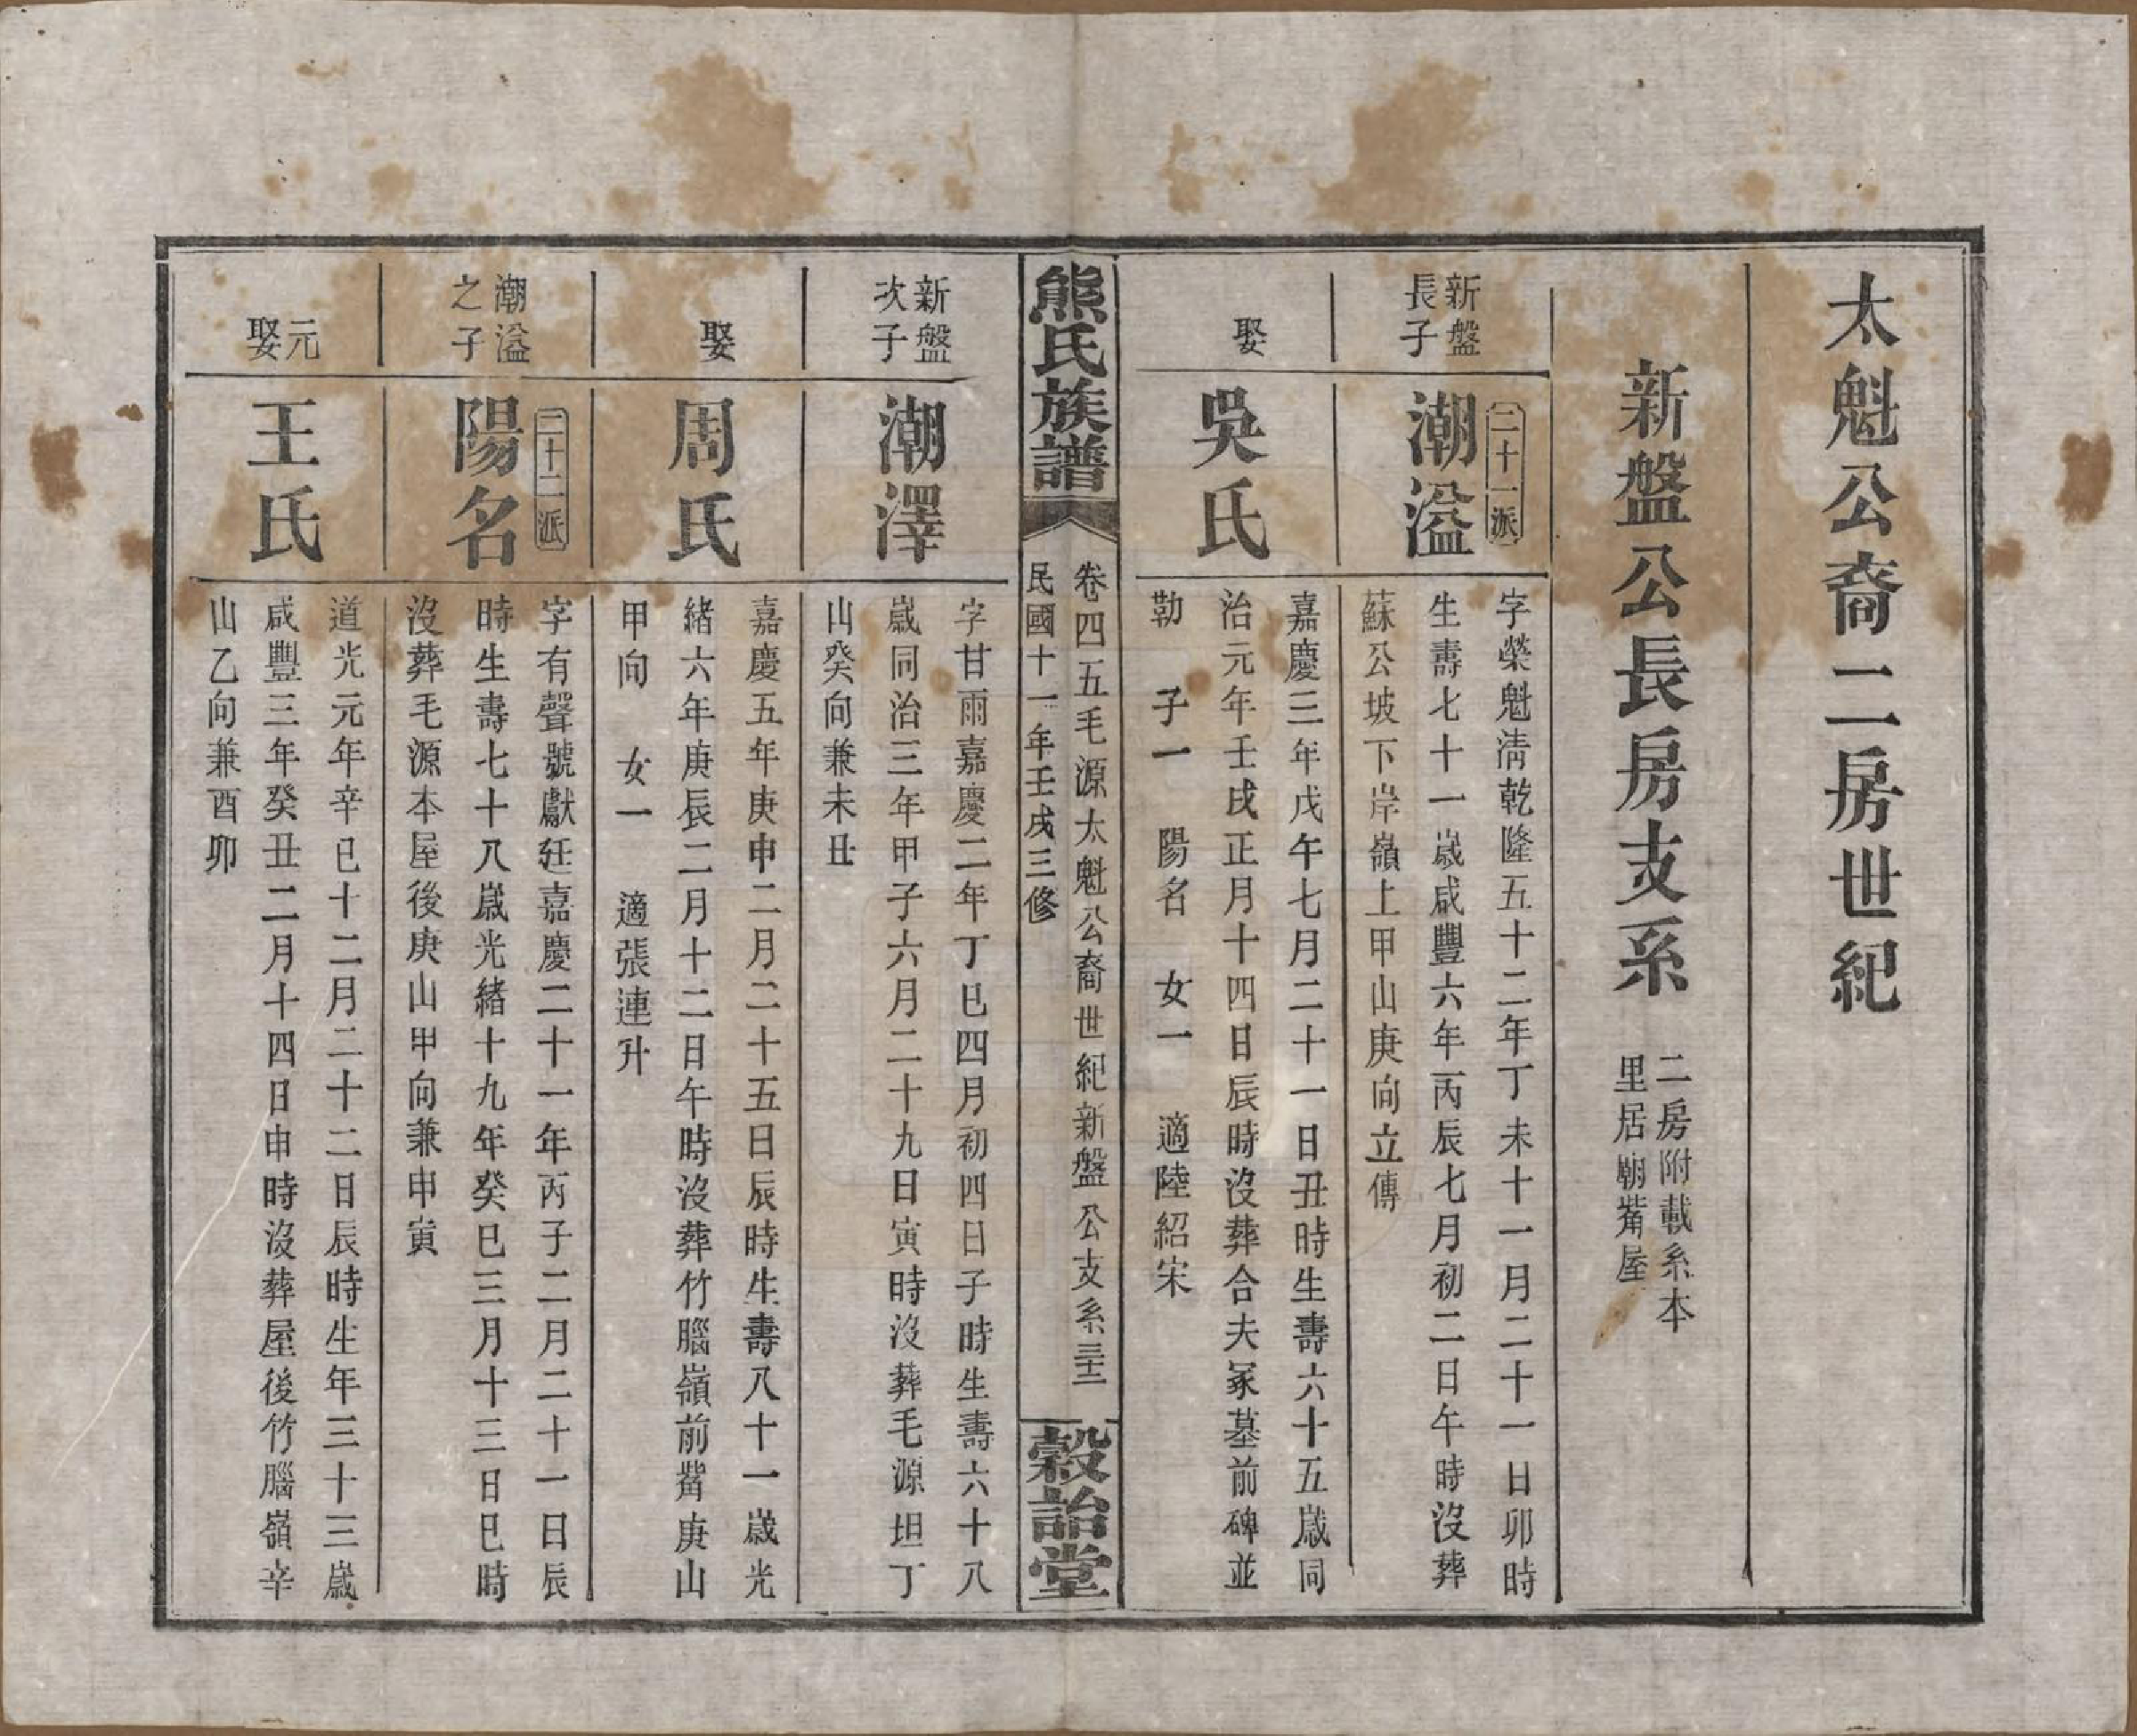 太魁公裔二房世紀
新盤公長房支系
二房附載系本
里居廟觜屋
新盤
長子
二十一派
潮溢
字榮魁清乾隆五十二年丁未十一月二十一日卯時
生壽七十一歲咸豐六年丙辰七月初二日午時沒葬
蘇公坡下岸嶺上甲山庚向立傳
娶
吳氏
嘉慶三年戊午七月二十一日丑時生壽六十五歲同
治元年壬戌正月十四日辰時沒葬合夫冢墓前碑並
勒　子一　陽名　女一　適陸紹宋
熊氏族譜
卷四五毛源太魁公裔世紀新盤公支系三十二
民國十一年壬戌三修
穀詒堂
新盤
次子
潮澤
字甘雨嘉慶二年丁巳四月初四日子時生壽六十八
歲同治三年甲子六月二十九日寅時沒葬毛源坦丁
山癸向兼未丑
娶
周氏
嘉慶五年庚申二月二十五日辰時生壽八十一歲光
緒六年庚辰二月十二日午時沒葬竹腦嶺前觜庚山
甲向　女一　適張連升
潮溢
之子
二十二派
陽名
字有聲號獻廷嘉慶二十一年丙子二月二十一日辰
時生壽七十八歲光緒十九年癸巳三月十三日巳時
沒葬毛源本屋後庚山甲向兼申寅
元
娶
王氏
道光元年辛巳十二月二十二日辰時生年三十三歲
咸豐三年癸丑二月十四日申時沒葬屋後竹腦嶺辛
山乙向兼酉卯